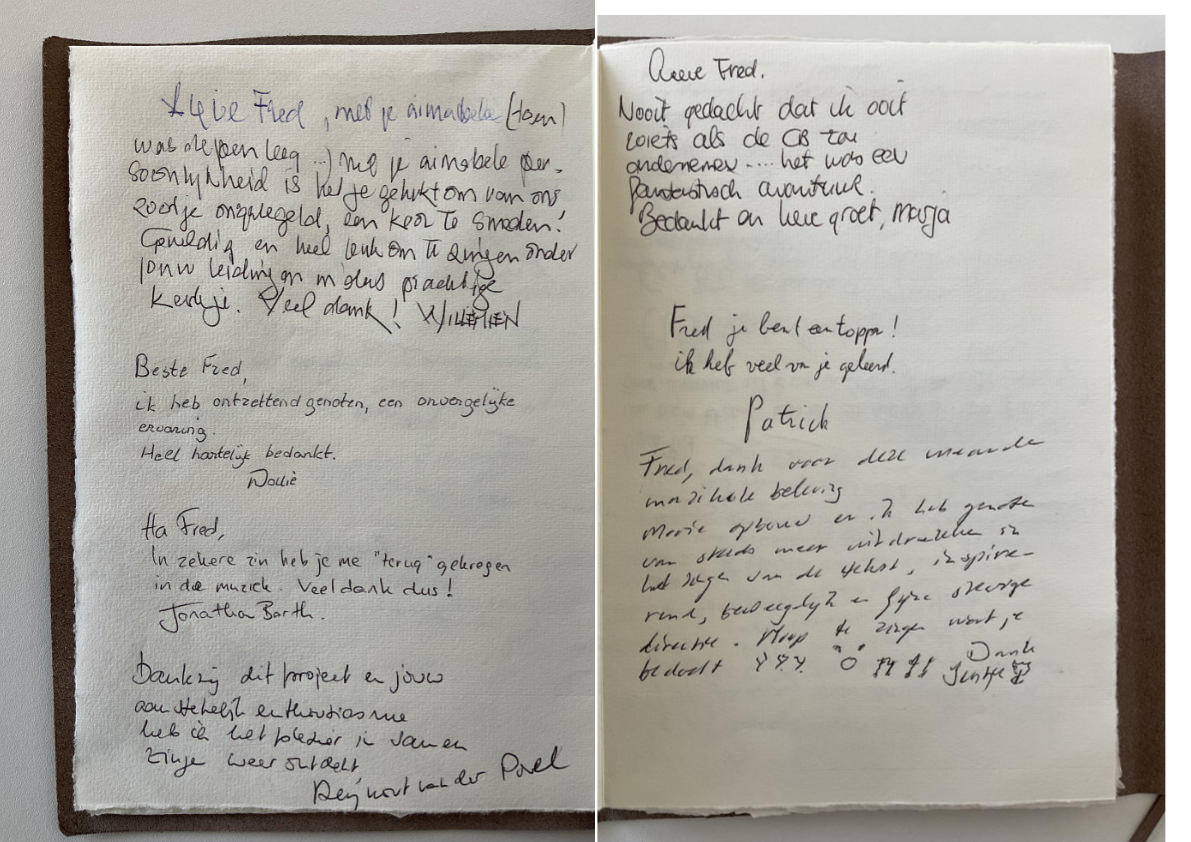 Lieve Fred, met je aimabele (toen
was de pen leeg ...) met je aimabele per-
soonlijkheid is het je gelukt om van ons
zootje ongeregeld, een koor te smeden!
Geweldig en heel leuk om te zingen onder
jouw leiding en in dus prachtige
kerkje. Veel dank! WILLEMIEN
Beste Fred,
ik heb ontzettend genoten, een onvergelijke
ervaring.
Heel hartelijk bedankt.
Ha Fred,
In zekere zin heb je me "terug" gekregen
in de muziek. Veel dank dus!
Jonathan Barth.
Dankzij dit project en jouw
aanstekelijk enthousiasme
heb ik het plezier in samen
zinge weer ontdekt
Reijnout van der Poel
Lieve Fred.
Nooit gedacht dat ik ooit
zoiets als de CB zou
ondernemen.... het was een
fantastisch avontuur.
Bedankt en lieve groet, Marja
Fred je bent een topper!
ik heb veel van je geleerd.
Patrick
Fred, dank voor deze
muzikale beleving
Mooie opbouw en ik heb genoten
van steeds meer uitdrukken in
het zingen van de tekst, inspire-
rend, beweeglijk en fijne stevige
directie. Hoop te zingen wat je
bedoelt
Dank
Jentje